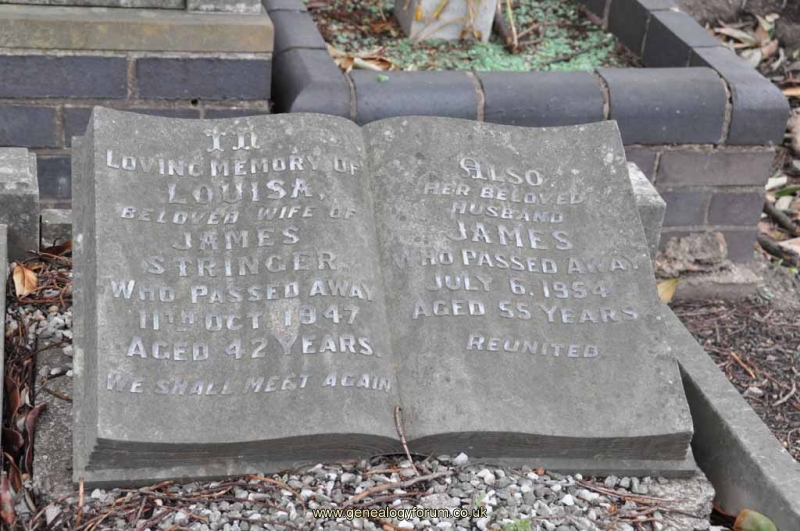 In
Loving memory of
LOUISA,
beloved wife of
JAMES
STRINGER
Who passed away
11th Oct. 1947
Aged 42 years.
We shall meet again
Also
her beloved
husband
JAMES
Who passed away
July 6. 1954
aged 55 years.
Reunited.
www.genealogyforum.co.uk